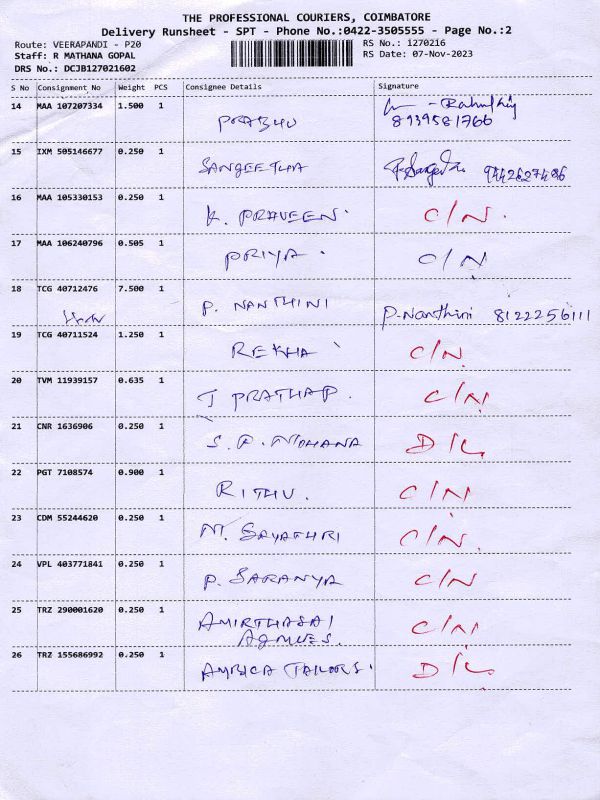 THE PROFESSIONAL COURIERS, COIMBATORE
Delivery Runsheet - SPT - Phone No.:0422-3505555 - Page No.:2
Route: VEERAPANDI - P20 RS No.: 1270216
Staff: R MATHANA GOPAL RS Date: 07-Nov-2023
DRS No.: DCJB127021602
S No Consignment No Weight PCS Consignee Details Signature
14 MAA 107207334 1.500 1 PRABHU
8939581766
15 IXM 505146677 0.250 1 SANGEETHA
16 MAA 105330153 0.250 1 K. PRAVEEN. C/N.
17 MAA 106240796 0.505 1 PRIYA. C/N
18 TCG 40712476 7.500 1 P. NANTHINI P.Nanthini 8122256111
19 TCG 40711524 1.250 1 REKHA C/N
20 TVM 11939157 0.635 1 J PRATHAP. C/N
21 CNR 1636906 0.250 1 S. R. MOHANA D/L
22 PGT 7108574 0.900 1 RITHU. C/N
23 CDM 55244620 0.250 1 M. GAYATHRI C/N.
24 VPL 403771841 0.250 1 P. SARANYA C/N
25 TRZ 290001620 0.250 1 AMIRTHASAI C/N
26 TRZ 155686992 0.250 1 AMBICA TAILORS. D/L